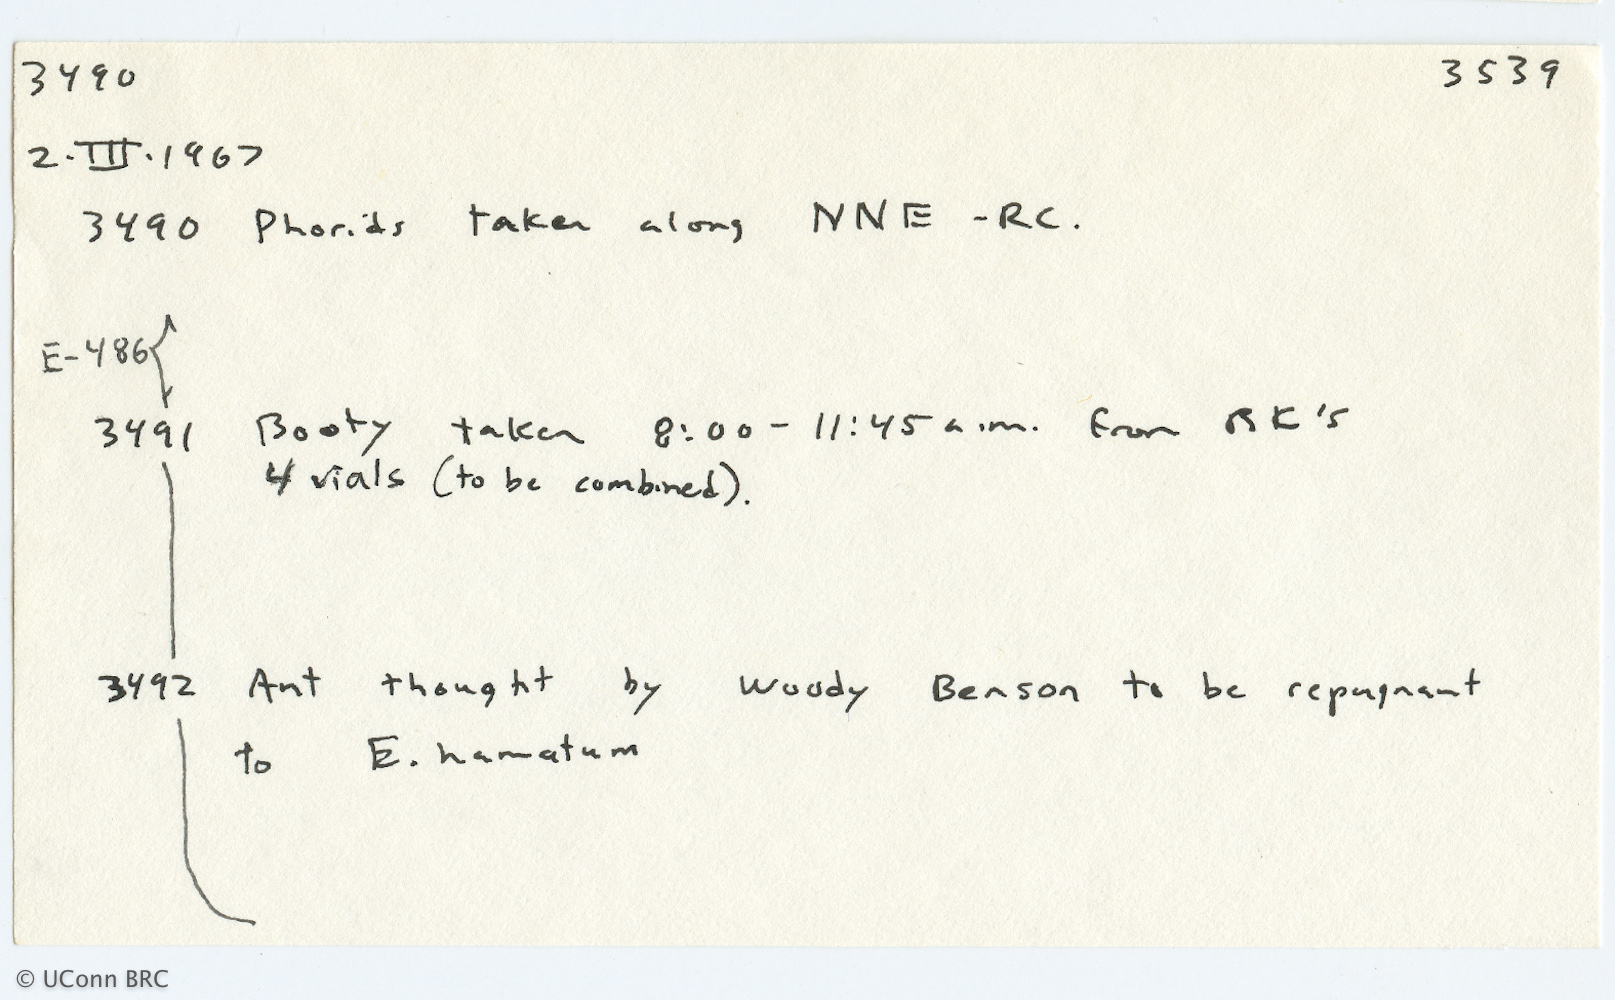 3490 3539
2·III·1967
3490 Phorids taken along NNE -RC.
E-486
3491 Booty taken 8:00-11:45 a.m. from RK's
4 vials (to be combined).
3492 Ant thought by Woody Benson to be repugnant
to E. hamatum
© UConn BRC